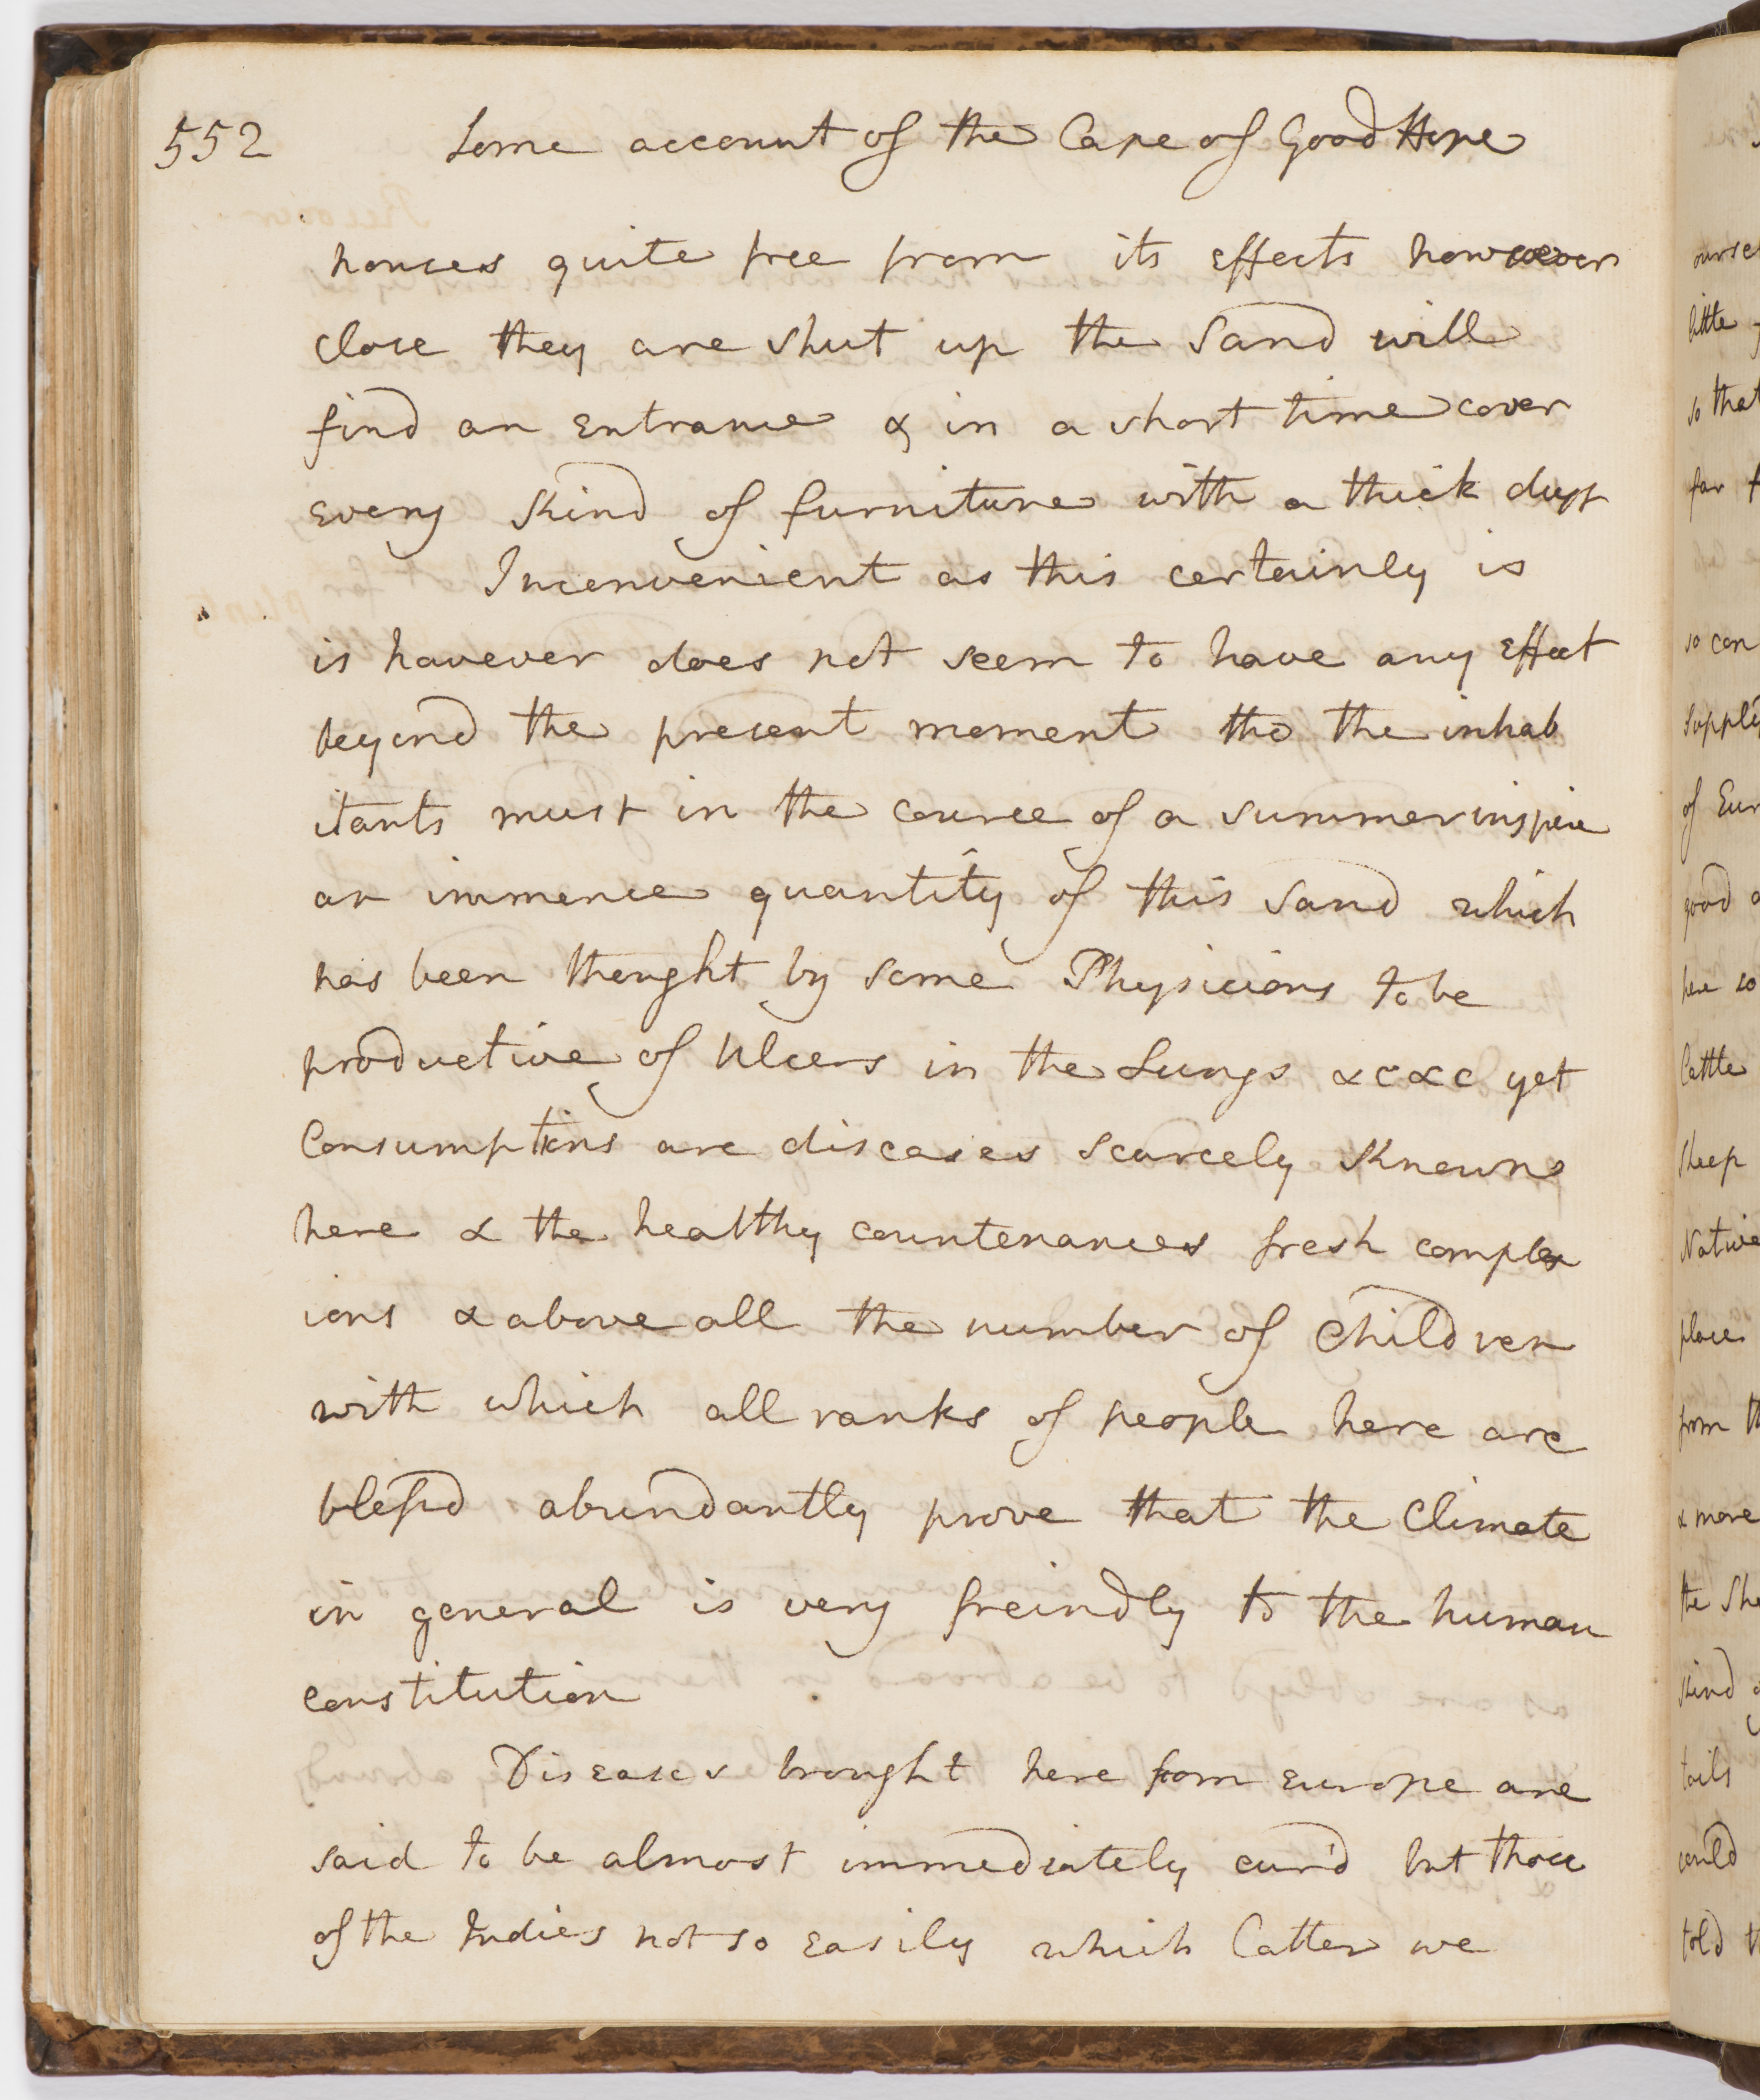 552 Some account of the Cape of Good Hope
houses quite free from its effects however
close they are shut up the Sand will
find an entrance & in a short time cover
every kind of furniture with a thick dust
Inconvenient as this certainly is
is however does not seem to have any effect
beyond the present moment tho the inhab
itants must in the course of a summer inspire
an immence quantity of this sand which
has been thought by some Physicians to be
productive of Ulcers in the Lungs &c &c yet
Consumptions are diseases scarcely known
here & the healthy countenances fresh complex
ions & above all the number of children
with which all ranks of people here are
blessd abundantly prove that the Climate
in general is very freindly to the human
constitution
Diseases brought here from Europe are
said to be almost immediately cur'd but those
of the Indies not so easily which latter we
ourse
little
so that
far f
so con
supply
of Eur
good
here so
Cattle
sheep
Native
place
from th
& more
the She
kind
tails
could
told th